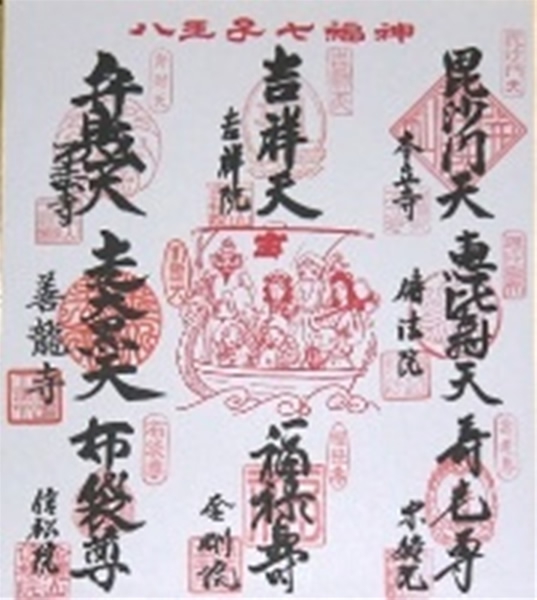 八王子七福神
毘沙門天
本立寺
吉祥天
吉祥院
弁財天
了法寺
恵比寿天
傳法院
宝
走大黒天
善龍寺
寿老尊
宗格院
福禄寿
金剛院
布袋尊
信松院